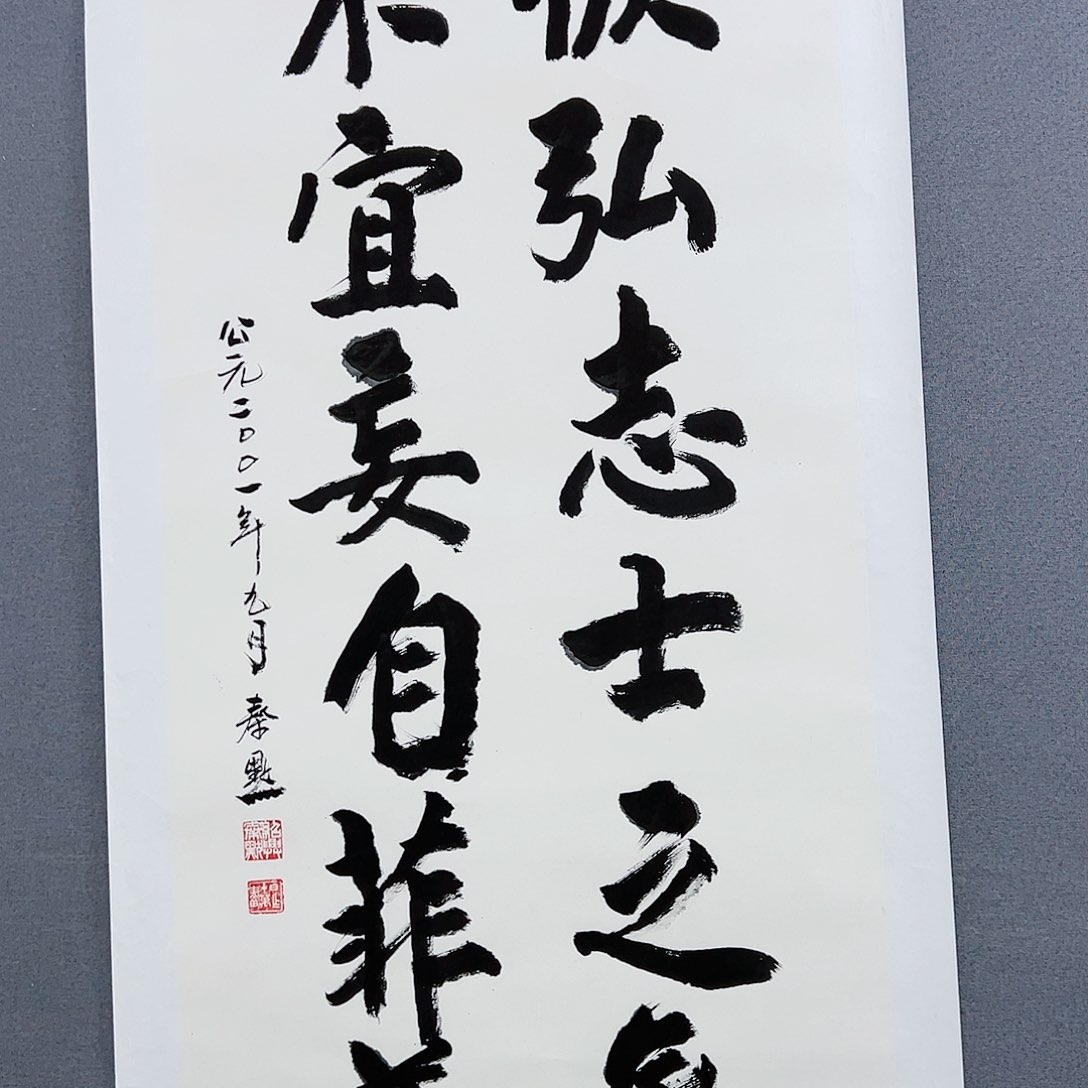 恢弘志士之
不宜妄自菲
公元二〇〇一年九月 秦